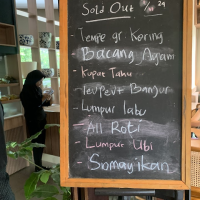 Sold Out
29
- Tempe gr. Kering
- Bacang Ayam
- Kupat Tahu
- Lumpur labu
- All Roti
- Lumpur Ubi
- Somayikan